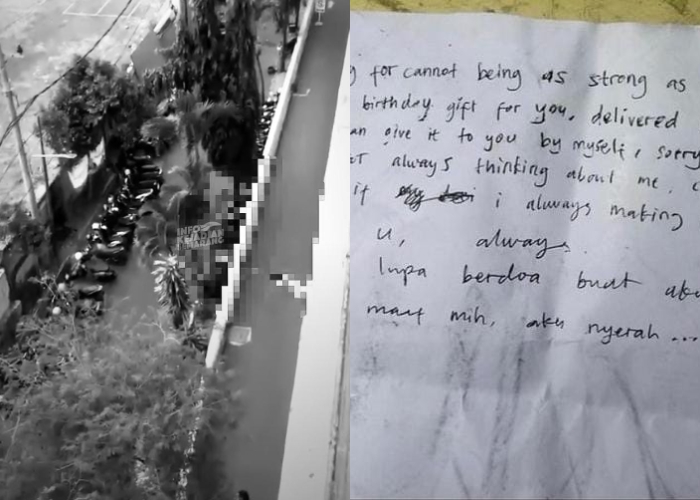 INFO
KEJADIAN
SEMARANG
for cannot being as strong as
birthday gift for you, delivered
give it to you by myself, sorry
always thinking about me.
if i always making
u, always
lupa berdoa buat
maaf mih, aku nyerah ...